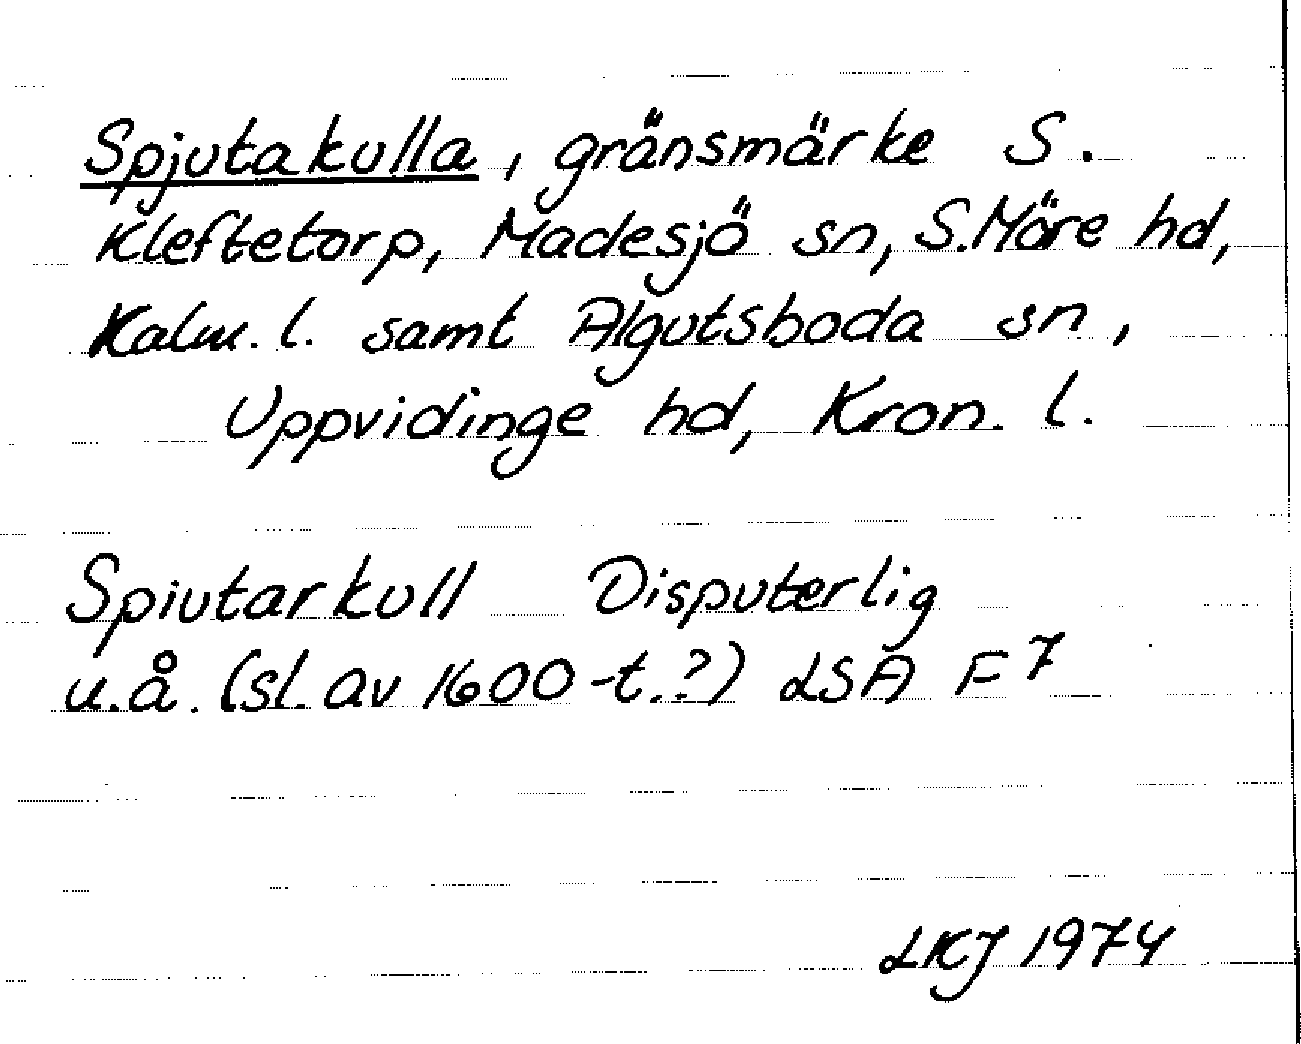 Spjutakulla, gränsmärke S.
Kleftetorp, Madesjö sn, S. Möre hd,
Kalm. l. samt Algutsboda sn,
Uppvidinge hd, Kron. l.
Spiutarkull Disputerlig
u.å. (sl. av 1600-t.?) LSA F7
LKJ 1974